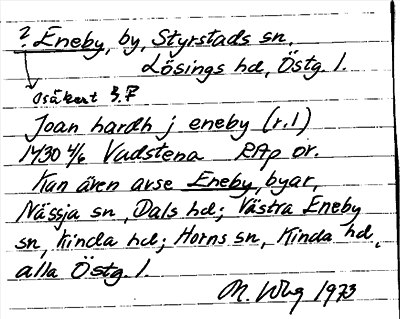 ? Eneby, by, Styrstads sn,
Lösings hd, Östg. l.
osäkert
Joan hardh j eneby (r. 1)
1430 4/6 Vadstena RAp or.
Kan även avse Eneby, byar,
Nässja sn, Dals hd; Västra Eneby
sn, Kinda hd; Horns sn, Kinda hd,
alla Östg. l.
1973